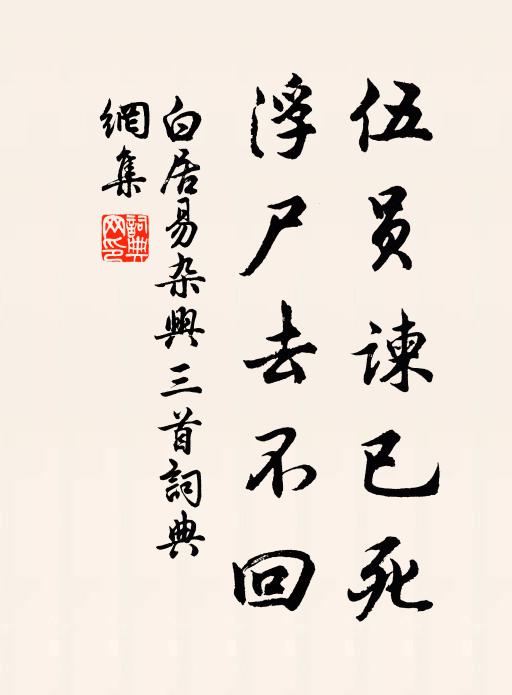 伍员諫已死
浮尸去不回
白居易杂興三首詞典
網集
詞典
网印